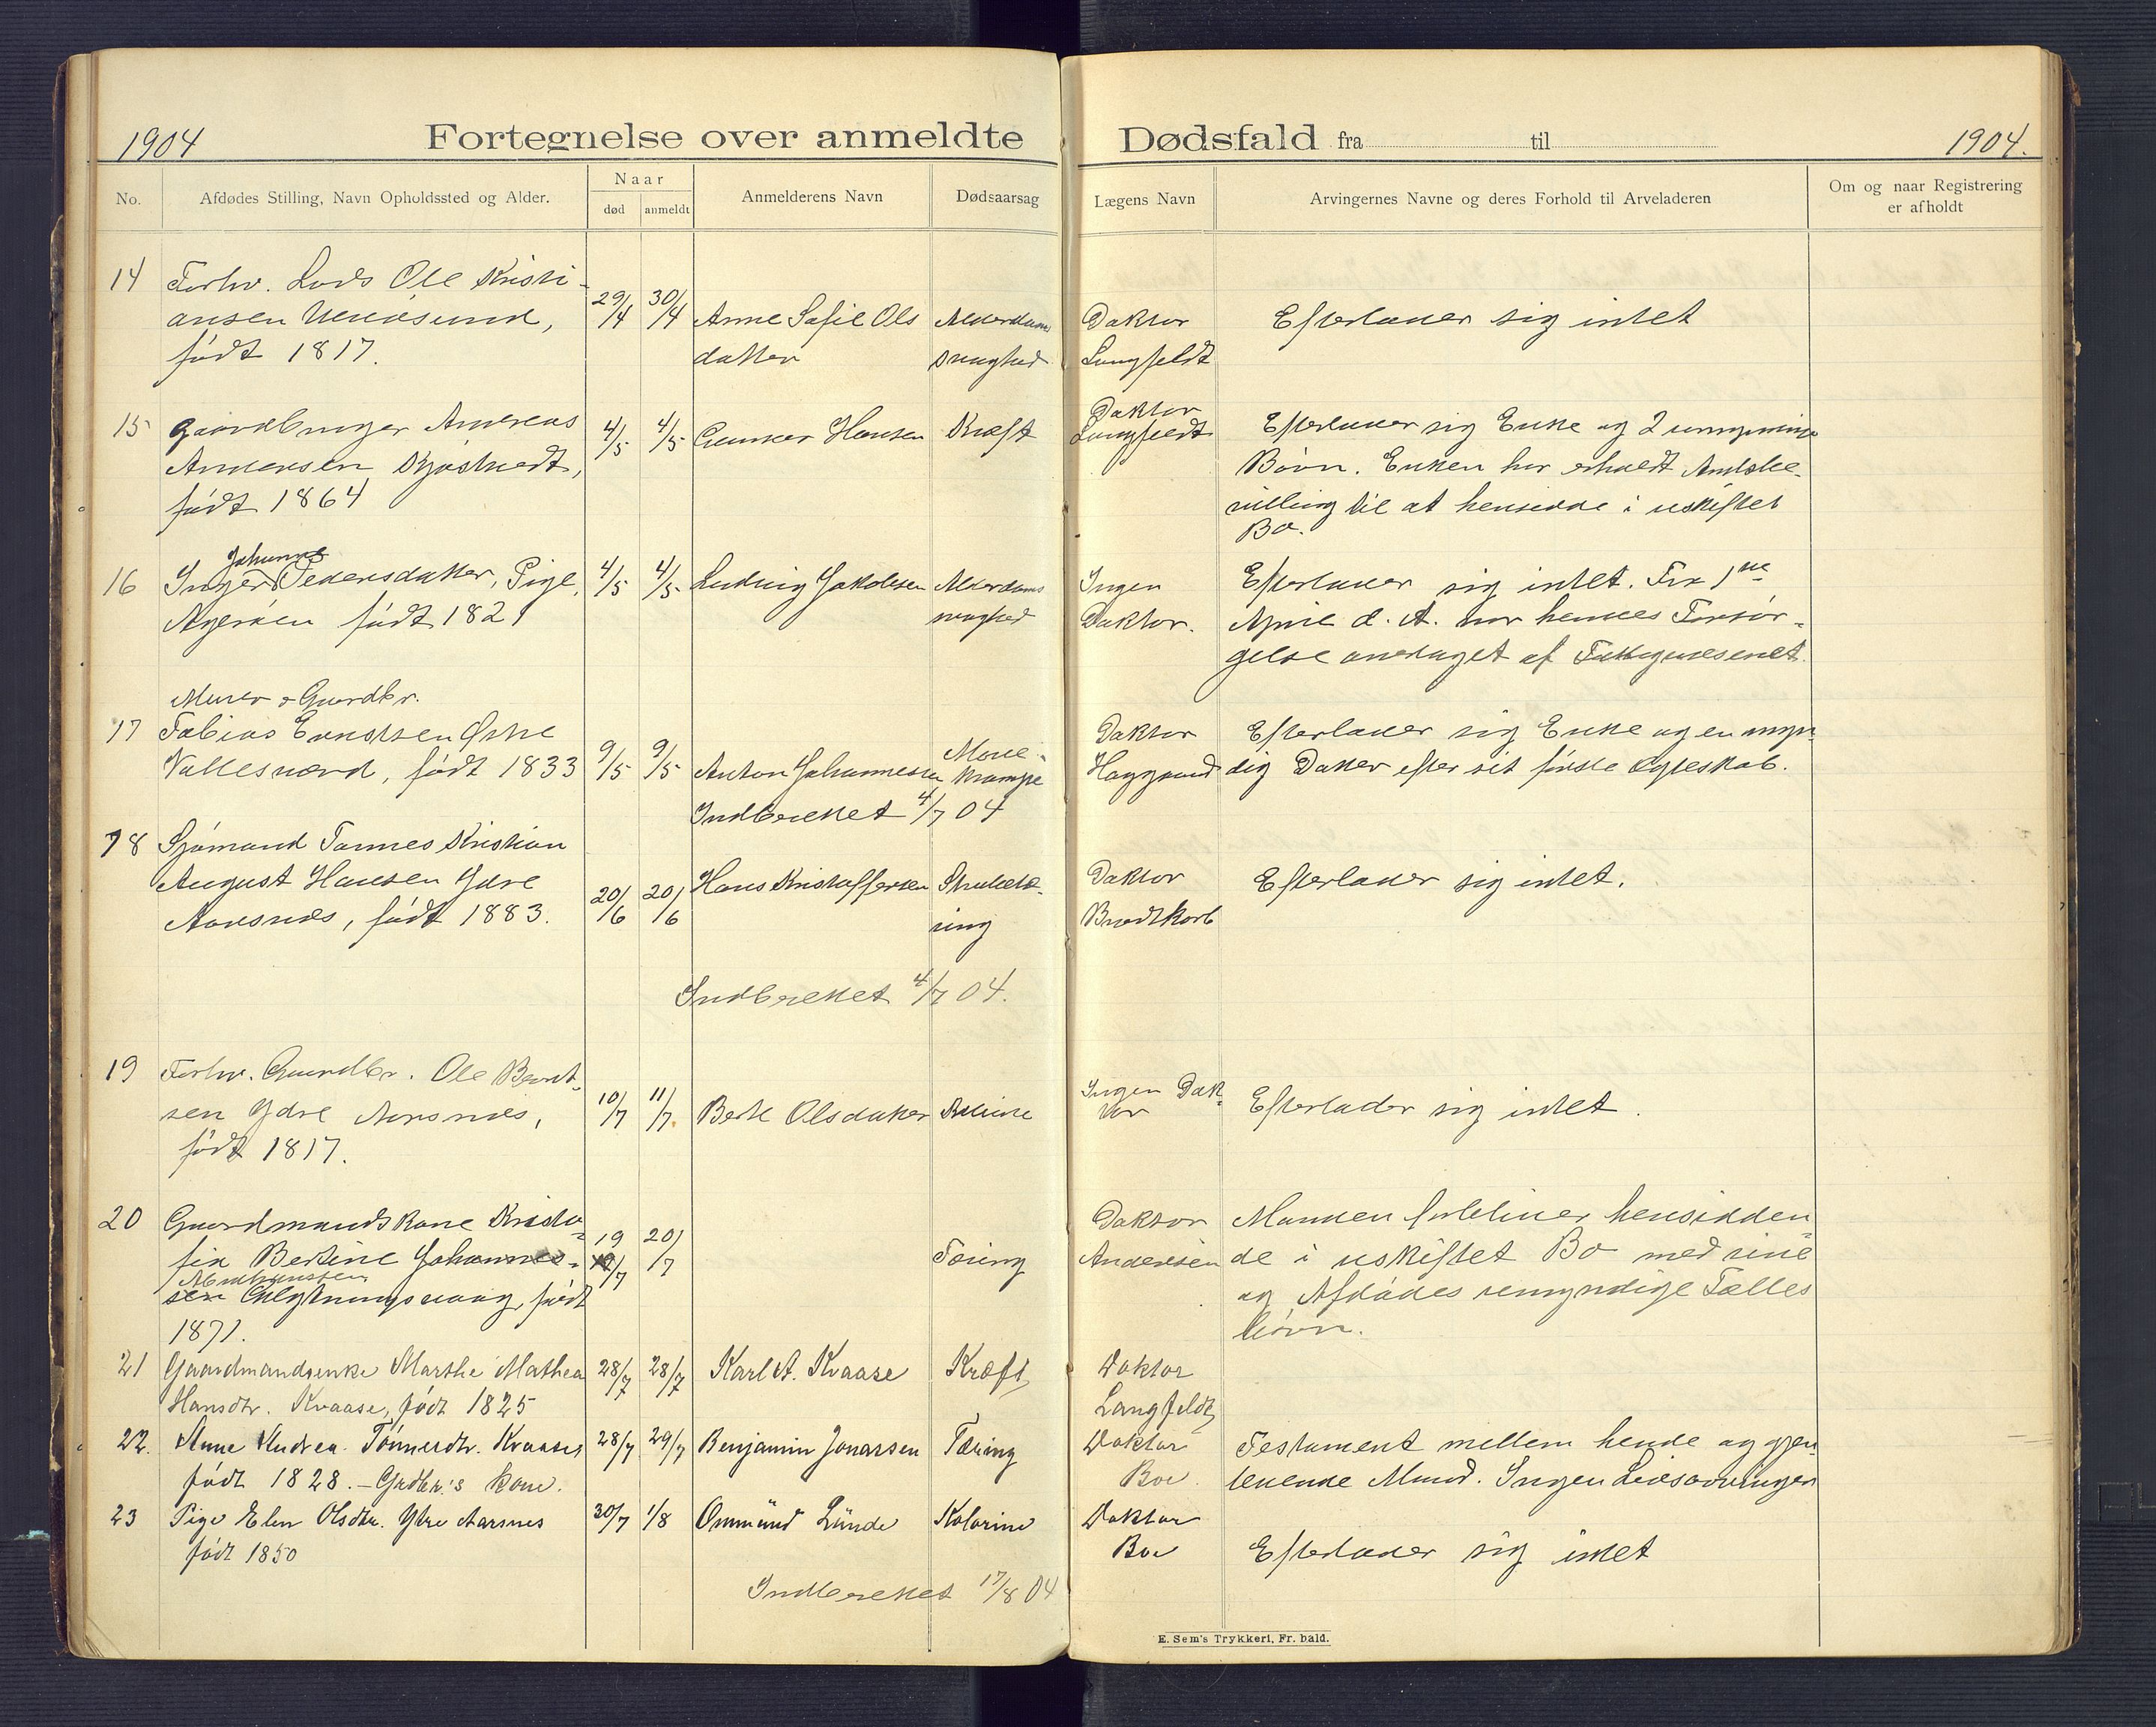 1904 Fortegnelse over anmeldte Dødsfald fra til 1904.
No. Afdødes Stilling, Navn Opholdssted og Alder. Naar død anmeldt Anmelderens Navn Dødsaarsag Lægens Navn Arvingernes Navne og deres Forhold til Arveladeren Om og naar Registrering er afholdt
14 Forhv. Lods Ole Kristi-
ansen Ulvøsund,
født 1817.
29/4 30/4 Anne Sofie Ols
datter
Alderdoms
svaghed
Doktor
Langfeldt
Efterlader sig intet
15 Gaardbruger Andreas
Andersen
født 1864
4/5 4/5 Gunner Hansen Kræft
Doktor
Langfeldt
Efterlader sig Enke og 2 umyndige
Børn. Enken har erholdt Amtsbe-
villing til at hensidde i uskiftet
Bo.
16 Inger Johanne Pedersdatter, Pige,
Agerøen født 1821
4/5 4/5 Ludvig Jakobsen Alderdoms
svaghed
Ingen
Doktor.
Efterlader sig intet. Fra 1ne
April d. A. var hendes Forsør-
gelse overtaget af Fattigvæsenet.
Murer & Gaardbr.
17 Tobias Evertsen Østre
Vallesværd, født 1833
9/5 9/5 Anton Johannessen Mave-
krampe
Doktor
Haggrund
Efterlader sig Enke og en myn-
dig Datter efter sit første Ægteskab.
Indberettet 4/7 04
18 Sjømand Tønnes Kristian
August Hansen Ydre
Aarsnes, født 1883.
20/6 20/6 Hans Kristoffersen Strubetæ-
ring
Doktor
Brodtkorb
Efterlader sig intet.
Indberettet 4/7 04.
19 Forhv. Gaardbr. Ole Bernt-
sen Ydre Aarsnes,
født 1817.
10/7 11/7. Berte Olsdatter
Ingen Dok-
tor
Efterlader sig intet.
20 Gaardmandskone Kristo-
fia Bertine Johannes-
sen født
1871.
19/7 20/7 Tæring
Doktor
Andersen
Manden forbliver hensidden-
de i uskiftet Bo med sine
og Afdødes umyndige Fælles
børn.
21 Gaardmandsenke Marthe Mathea
Hansdtr. Kvaase, født 1825
28/7 28/7 Karl A. Kvaase Kræft
Doktor
Langfeldt
22. Anne Andrea Tønnesdtr. Kvaase,
født 1828. – Grdbr.'s kone.
28/7 29/7 Benjamin Jonassen Tæring
Doktor
Boe
Testament mellem hende og gjen-
levende Mand. Ingen Livsarvinger
23 Pige Elen Olsdtr. Ytre Aarsnes
født 1850
30/7 1/8 Ommund Lunde Kolorine
Doktor
Boe
Efterlader sig intet
Indberettet 17/8 04
E. Sem's Trykkeri, Fr. hald.